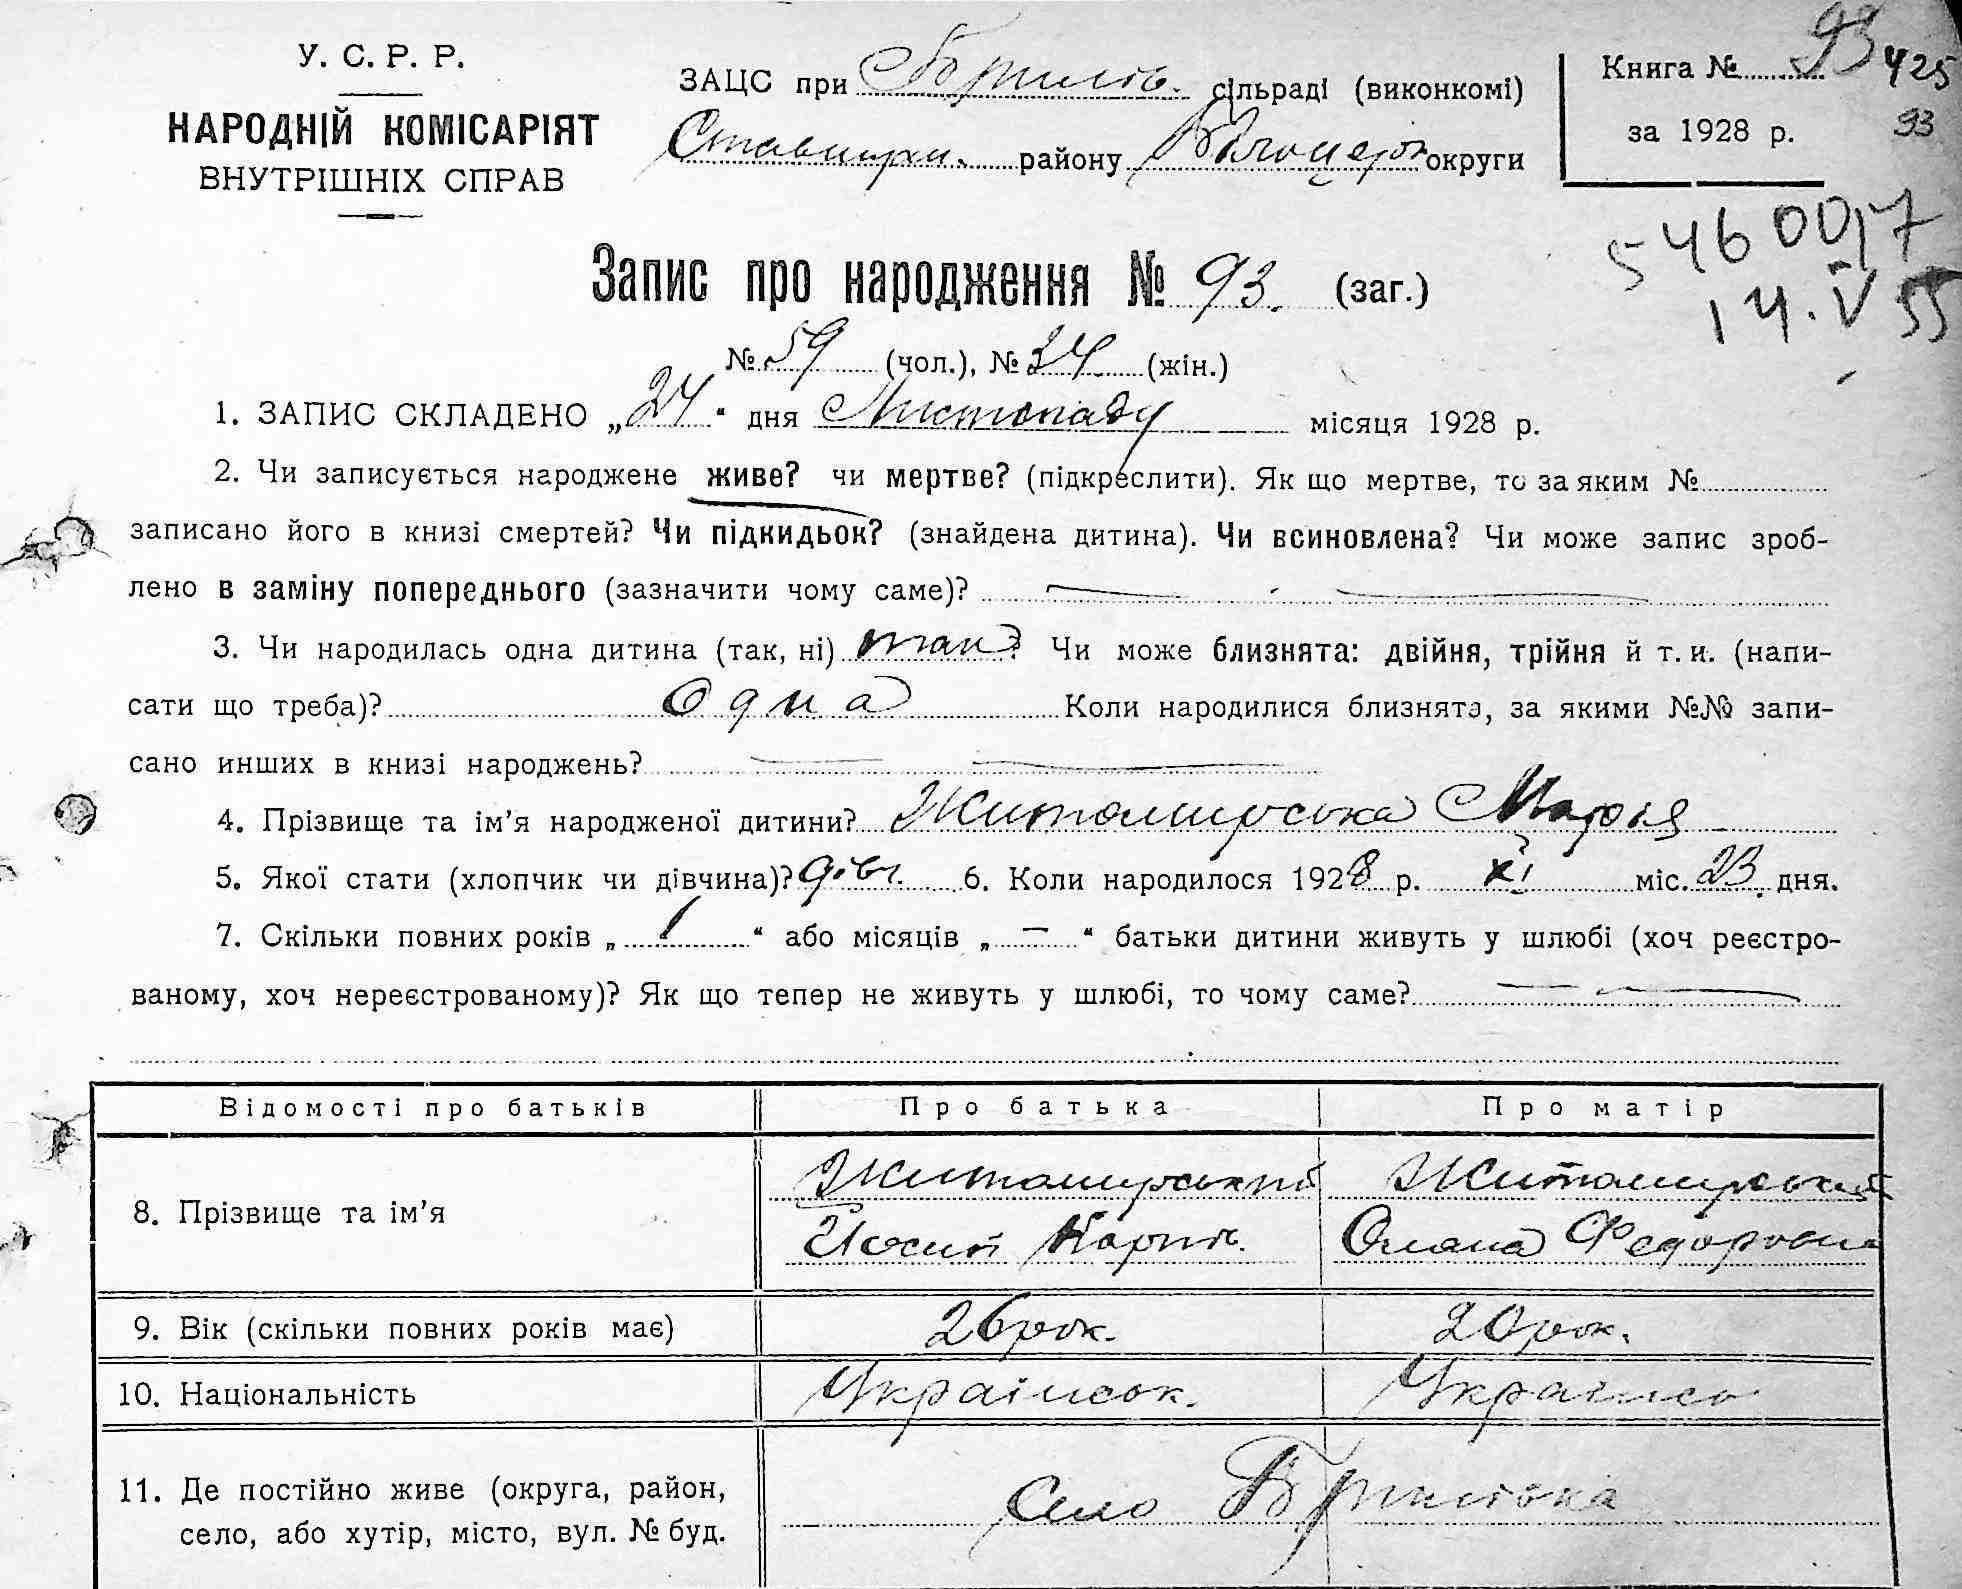 У. С. Р. Р.
НАРОДНІЙ КОМІСАРІЯТ
ВНУТРІШНІХ СПРАВ
ЗАЦС при сільраді (виконкомі)
Ставищ. району Білоцерк округи
Книга № 93 425
за 1928 р. 93
546 00/7
14.V 55
Запис про народження № 93. (заг.)
№ 59 (чол.), № 34 (жін.)
1. ЗАПИС СКЛАДЕНО „24“ дня Листопаду місяця 1928 р.
2. Чи записується народжене живе? чи мертве? (підкреслити). Як що мертве, то за яким №
записано його в книзі смертей? Чи підкидьок? (знайдена дитина). Чи всиновлена? Чи може запис зроб-
лено в заміну попереднього (зазначити чому саме)?
3. Чи народилась одна дитина (так, ні) так? Чи може близнята: двійня, трійня й т. и. (напи-
сати що треба)? Одна Коли народилися близнята, за якими №№ запи-
сано инших в книзі народжень?
4. Прізвище та ім’я народженої дитини? Житомирська Марія
5. Якої стати (хлопчик чи дівчина)? дівч. 6. Коли народилося 1928 р. XI міс. 23 дня.
7. Скільки повних років „1“ або місяців „—“ батьки дитини живуть у шлюбі (хоч реєстро-
ваному, хоч нереєстрованому)? Як що тепер не живуть у шлюбі, то чому саме?
Відомості про батьків Про батька Про матір
8. Прізвище та ім’я Житомирський Житомирська
Йосип Карп. Олена Федоровна
9. Вік (скільки повних років має) 26 рок. 20 рок.
10. Національність Українськ. Українсь
11. Де постійно живе (округа, район,
село, або хутір, місто, вул. № буд.
Село